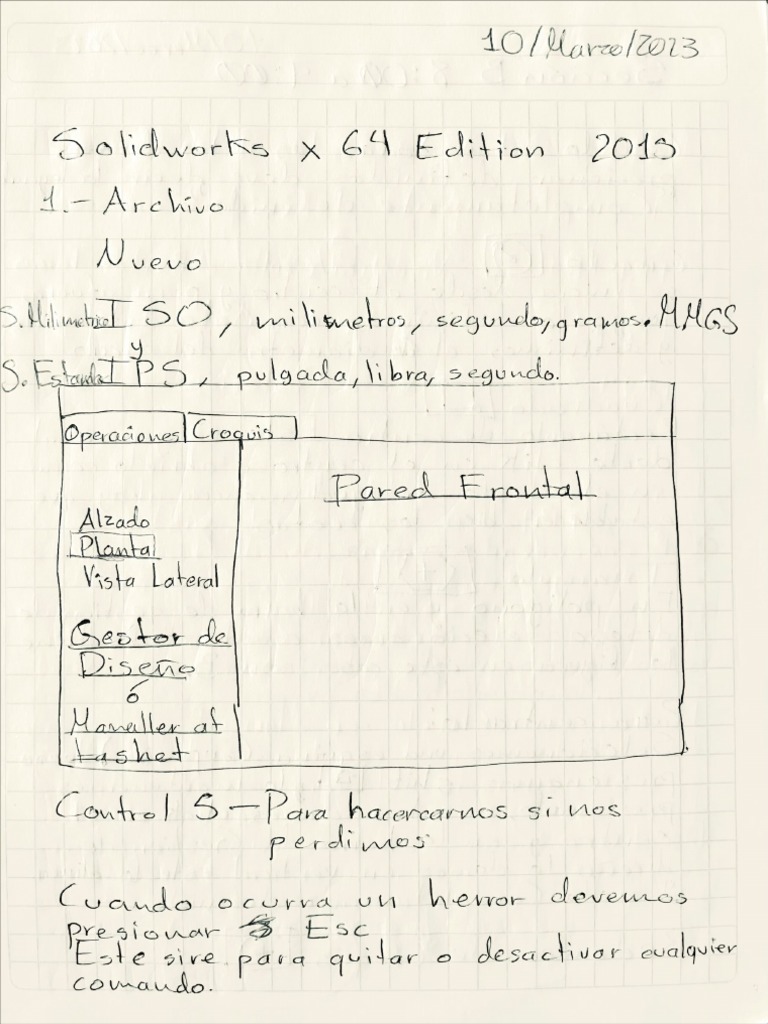 10/Marzo/2023
Solidworks x 64 Edition 2015
1.- Archivo
Nuevo
S. Milimetrico ISO, milimetros, segundo, gramos. MMGS
y
S. Estandar IPS, pulgada, libra, segundo.
Operaciones Croquis
Pared Frontal
Alzado
Planta
Vista Lateral
Gestor de
Diseño
ó
Manaller at
tashet
Control S - Para hacercarnos si nos
perdimos
Cuando ocurra un herror devemos
presionar Esc
Este sire para quitar o desactivar cualquier
comando.